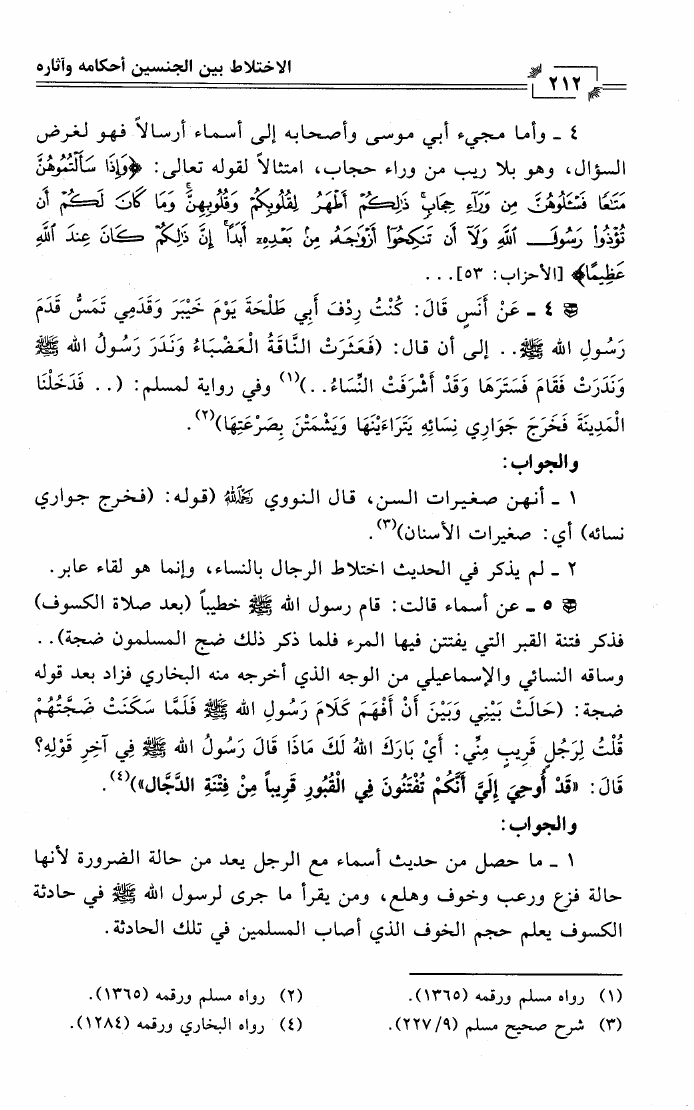 الاختلاط بين الجنسين أحكامه وآثاره
٢١٢
٤ ـ وأما مجيء أبي موسى وأصحابه إلى أسماء أرسالاً فهو لغرض
السؤال، وهو بلا ريب من وراء حجاب، امتثالاً لقوله تعالى: ﴿وَإِذَا سَأَلْتُمُوهُنَّ
مَتَٰعًا فَسْـَٔلُوهُنَّ مِن وَرَآءِ حِجَابٍ ذَٰلِكُمْ أَطْهَرُ لِقُلُوبِكُمْ وَقُلُوبِهِنَّ وَمَا كَانَ لَكُمْ أَن
تُؤْذُوا رَسُولَ اللَّهِ وَلَآ أَن تَنكِحُوٓا أَزْوَٰجَهُۥ مِنۢ بَعْدِهِۦٓ أَبَدًا إِنَّ ذَٰلِكُمْ كَانَ عِندَ اللَّهِ
عَظِيمًا﴾ [الأحزاب: ٥٣]...
٤ ـ عَنْ أَنَسٍ قَالَ: كُنْتُ رِدْفَ أَبِي طَلْحَةَ يَوْمَ خَيْبَرَ وَقَدَمِي تَمَسُّ قَدَمَ
رَسُولِ الله ﷺ.. إلى أن قال: (فَعَثَرَتْ النَّاقَةُ الْعَضْبَاءُ وَنَدَرَ رَسُولُ الله ﷺ
وَنَدَرَتْ فَقَامَ فَسَتَرَهَا وَقَدْ أَشْرَفَتْ النِّسَاءُ..)(١) وفي رواية لمسلم: (.. فَدَخَلْنَا
الْمَدِينَةَ فَخَرَجَ جَوَارِي نِسَائِهِ يَتَرَاءَيْنَهَا وَيَشْمَتْنَ بِصَرْعَتِهَا)(٢).
والجواب:
١ ـ أنهن صغيرات السن، قال النووي رَحِمَهُ اللهُ (قوله: (فخرج جواري
نسائه) أي: صغيرات الأسنان)(٣).
٢ ـ لم يذكر في الحديث اختلاط الرجال بالنساء، وإنما هو لقاء عابر.
٥ ـ عن أسماء قالت: قام رسول الله ﷺ خطيباً (بعد صلاة الكسوف)
فذكر فتنة القبر التي يفتتن فيها المرء فلما ذكر ذلك ضج المسلمون ضجة)..
وساقه النسائي والإسماعيلي من الوجه الذي أخرجه منه البخاري فزاد بعد قوله
ضجة: (حَالَتْ بَيْنِي وَبَيْنَ أَنْ أَفْهَمَ كَلَامَ رَسُولِ الله ﷺ فَلَمَّا سَكَنَتْ ضَجَّتُهُمْ
قُلْتُ لِرَجُلٍ قَرِيبٍ مِنِّي: أَيْ بَارَكَ اللهُ لَكَ مَاذَا قَالَ رَسُولُ الله ﷺ فِي آخِرِ قَوْلِهِ؟
قَالَ: «قَدْ أُوحِيَ إِلَيَّ أَنَّكُمْ تُفْتَنُونَ فِي الْقُبُورِ قَرِيباً مِنْ فِتْنَةِ الدَّجَّالِ»)(٤).
والجواب:
١ ـ ما حصل من حديث أسماء مع الرجل يعد من حالة الضرورة لأنها
حالة فزع ورعب وخوف وهلع، ومن يقرأ ما جرى لرسول الله ﷺ في حادثة
الكسوف يعلم حجم الخوف الذي أصاب المسلمين في تلك الحادثة.
(١) رواه مسلم ورقمه (١٣٦٥). (٢) رواه مسلم ورقمه (١٣٦٥).
(٣) شرح صحيح مسلم (٢٢٧/٩). (٤) رواه البخاري ورقمه (١٢٨٤).